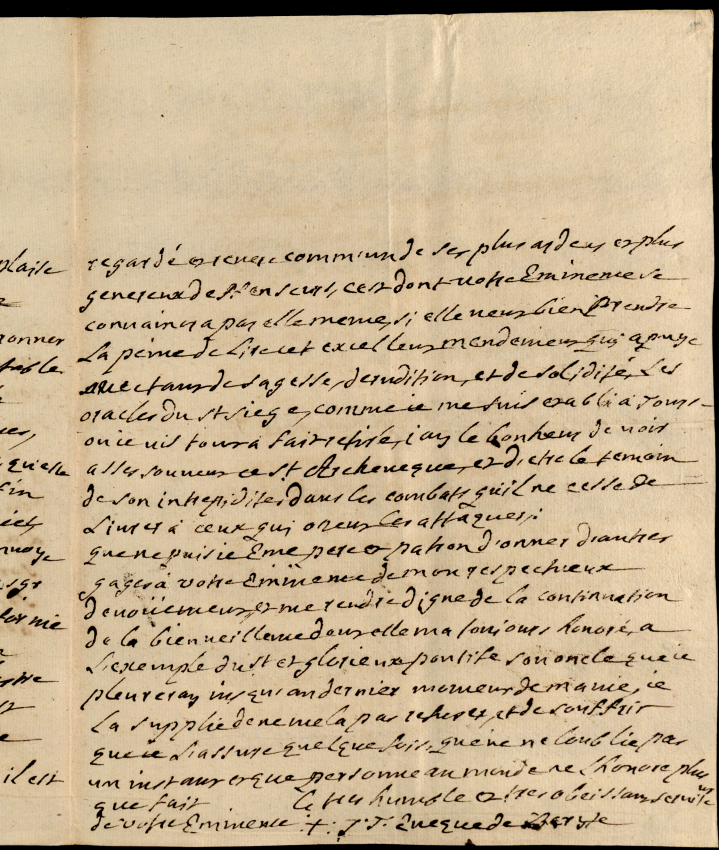 plaise
regardé et revere commun de ses plus ardens et plus
genereux deffenseurs, c'est dont votre Eminence se
convaincra par elle meme, si elle veut bien prendre
onner
La peine de Lire cet excellent mandement qui apuye
table
avec tant de sagesse, d'erudition, et de solidité, Les
oracles du st siege, comme ie me suis etabli a Tours
ou ie vis tout a fait retiré, j'ay le bonheur de voir
asses souvent ce st Archeveque, et d'etre le temoin
de son intrepidité dans les combats qu'il ne cesse de
Livrer a ceux qui oseut les attaquer;
que ne puis ie Eme pere et patron donner d'autres
gages a votre Eminence de mon respectueux
devoüement, et me rendre digne de la continuation
de la bienveillence dont elle ma toujours honoré, a
L'exemple du st et glorieux pontife son oncle que ie
pleureray iusqu'au dernier moment de ma vie, ie
La supplie de ne me la pas refuser, et de souffrir
que ie L'assure quelque fois, que ie ne l'oublie pas
il est
un instant et que personne au monde ne L'honore plus
que fait Le tres humble et tres obeissant servite
de votre Eminence + J. J. Eveque de